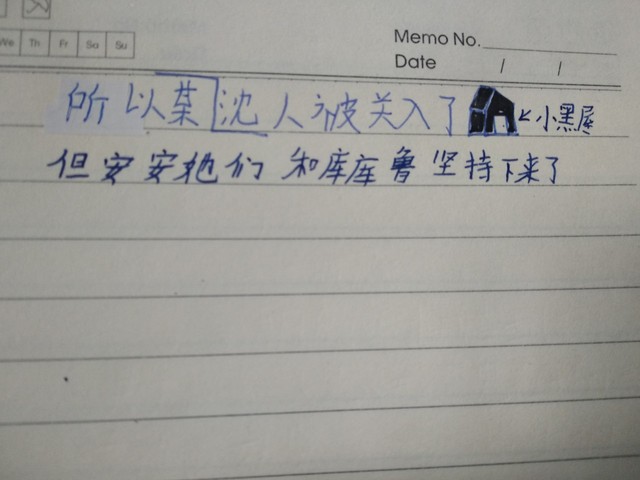 We Th Fr Sa Su
Memo No.
Date / /
所以某沈人被关入了 ←小黑屋
但安安她们和库库鲁坚持下来了